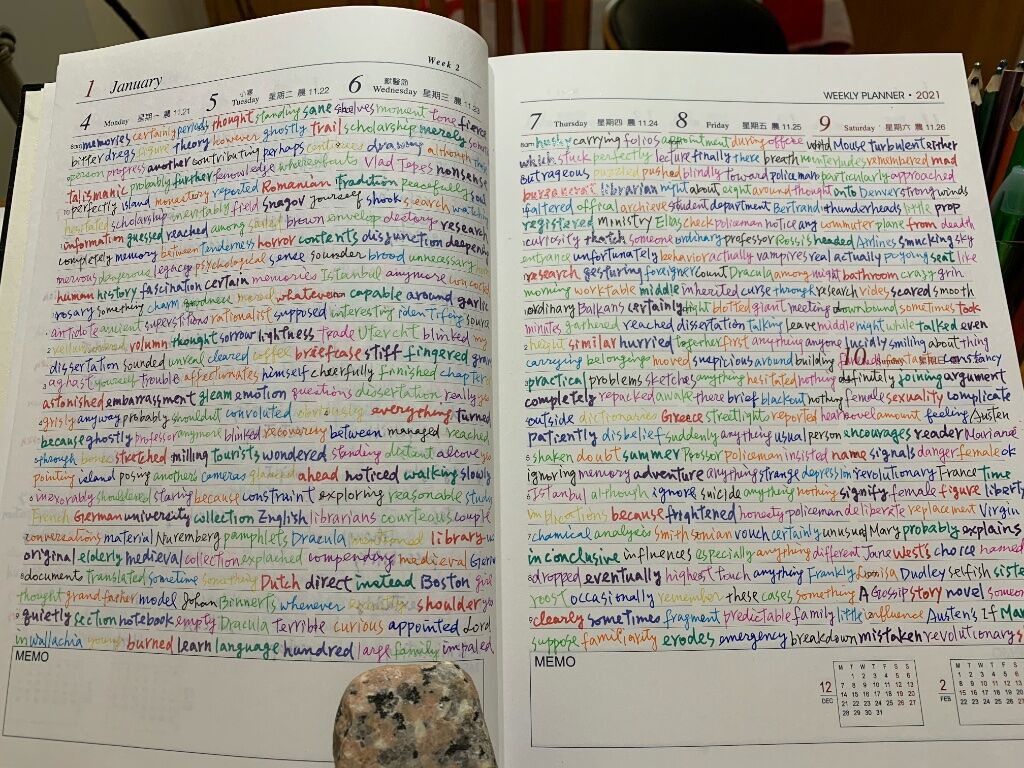 1 January
Week 2
4 Monday 星期一 農 11.21
5 小寒 Tuesday 星期二 農 11.22
6 獸醫節 Wednesday 星期三 農 11.23
8am memories certainly periods thought standing sane shelves moment tone fierce
bitter dregs figure theory however ghostly trail scholarship merely
person progress another contributing perhaps continues drawing although
talismanic probably further knowledge whereabouts Vlad Tepes nonsense
10 perfectly island monastery reported Romanian tradition peacefully soul
hesitated scholarship inevitably field Snagov yourself shook search
information guessed reached among sailed brown envelop destory research
completely memory between tenderness horror contents disjunction deepening
nervous dangerous legacy psychological sense sounder brood unnecessary
human history fascination certain memories Istanbul anymore
rosary something charm goodness moved whatever capable around garlic
antidote ancient superstitions rationalist supposed interesting identifing source
volumn thought sorrow lightness trade Utercht blinked my
dissertation sounded unreal cleared coffee briefcase stiff fingered
aghast yourself trouble affectionates himself cheerfully finished chapter
astonished embarrassment gleam emotion questions dissertation really
grisly anyway probably shouldnt convoluted obviously everything turned
because ghostly professor anymore blinked recovering between managed reached
through bones stretched milling tourists wondered standing distant alcove
pointing island posing anothers cameras glanced ahead noticed walking slowly
inexorably shouldered staring because construint exploring reasonable study
French German university collection English librarians courteous couple
conversations material Nuremberg pamphlets Dracula mentioned library
original elderly medieval collection explached compending medieval
document translated someting something Dutch direct instead Boston
thought grandfather model Johan Binnerts whenever shoulder
quietly section notebook empty Dracula terrible curious appointed Lord
in Wallachia young burned learn language hundred large family impaled
MEMO
WEEKLY PLANNER • 2021
7 Thursday 星期四 農 11.24
8 Friday 星期五 農 11.25
9 Saturday 星期六 農 11.26
8am husky carrying folios appointment during office wild Mouse turbulent either
which stuck perfectly lecture finally there breath remembered mad
outrageous puzzled pushed blindly toward policeman particularly approached
bureaucrat librarian night about eight around thought onto Denver strong winds
faltered offical archieve student department Bertrand thunderheads little prop
registered ministry Ellas check policemen notice any commuter plane from death
curiosity thatch someone ordinary professor Rossis headed Airlines smucking sky
entrance unfortunately behavior actually vampires real actually poying seat like
research gesturing foreigner count Dracula among might bathroom crazy grin
morning worktable middle inherited curse through research rides scared smooth
ordinary Balkans certainly night blotted giant meeting downbound sometimes took
minutes gathered reached dissertation talking leave middle night while talked even
2 height similar hurried together first anything anyone lucidly smiling about thing
carrying belongings moved suspicious around building constancy
10 Sunday 星期日
practical problems sketches anything hesitated nothing definitely joining argument
completely repacked awake there brief blackout nothing female sexuality complicate
outside dictionaries Greece streetlight reported hear novel amount feeling Austen
patiently disbelief suddenly anything usual person encourages reader Mariane
shaken doubt summer Prossor policeman insisted name signals danger female ok
ignoring memory adventure anything strange depression revolutionary France time
Istanbul although ignore suicide anything nothing signify female figure liberty
because frightened honesty policeman deliberate replacement Virgin
7 chemical analysis Smithsonian vouch certainly unusual Mary probably explains
inconclusive influences especially anything different Jane West's choice named
8 dropped eventually highest touch anything Frankly Louisa Dudley selfish siste
roost occasionally remember these cases something A Gossip story novel someon
9 clearly sometimes fragment predictable family little influence Austen's If Mar
suppose familiarity erodes emergency breakdown mistaken revolutionary
MEMO
12 DEC
M T W T F S S
1 2 3 4 5 6
7 8 9 10 11 12 13
14 15 16 17 18 19 20
21 22 23 24 25 26 27
28 29 30 31
2 FEB
M T W T F S
1 2 3 4 5 6
8 9 10 11 12 13
15 16 17 18 19 20
22 23 24 25 26 27